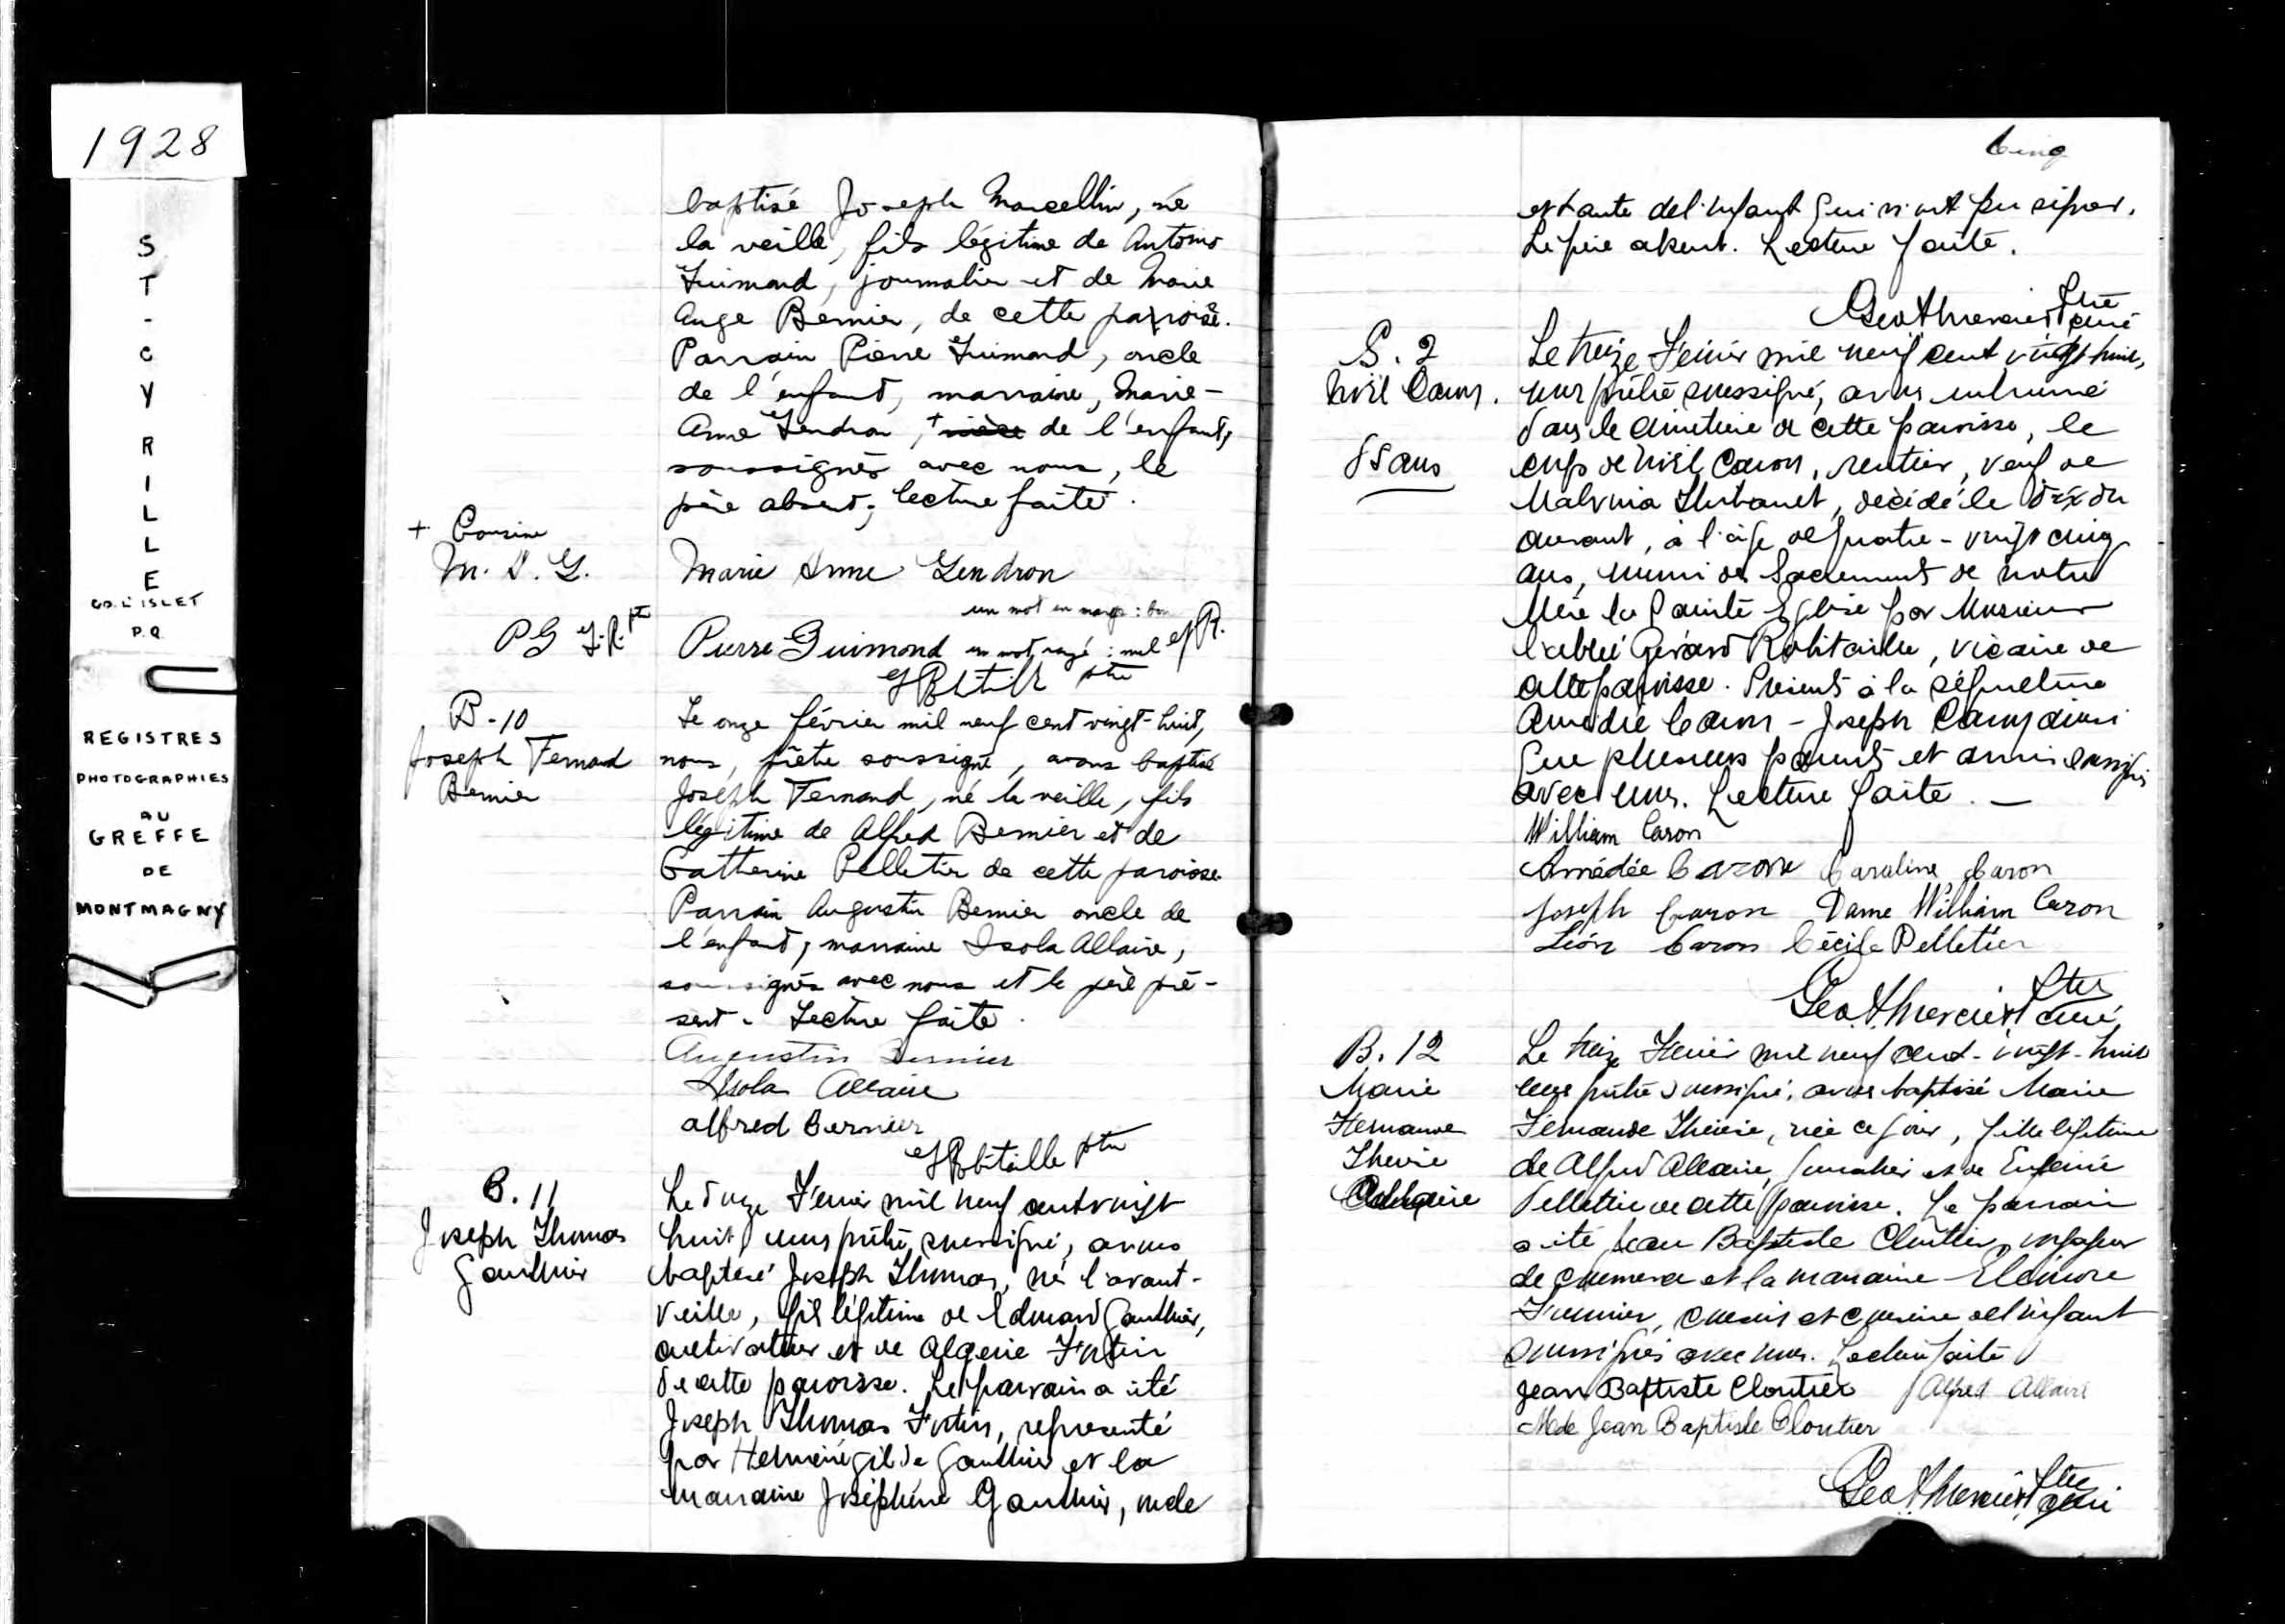 1928
ST-CYRILLE
CO. L'ISLET
P.Q.
REGISTRES
PHOTOGRAPHIES
AU
GREFFE
DE
MONTMAGNY
baptisé Joseph Marcellin, né
la veille, fils légitime de Antonio
Guimond, journalier et de Marie
Ange Bernier, de cette paroisse.
Parrain Pierre Guimond, oncle
de l'enfant, marraine, Marie-
Anne Gendron, + de l'enfant,
soussignés avec nous, le
père absent; lecture faite.
+ Cousine
M. A. G.
Marie Anne Gendron
un mot en marge : bon
P G G.R. ptre
Pierre Guimond un mot rayé : nul G R.
G Robitaille ptre
B-10
Joseph Fernand
Bernier
Le onze février mil neuf cent vingt-huit,
nous, prêtre soussigné, avons baptisé
Joseph Fernand, né la veille, fils
légitime de Alfred Bernier et de
Catherine Pelletier de cette paroisse
Parrain Augustin Bernier oncle de
l'enfant, marraine Isola Allaire,
soussignés avec nous et le père pré-
sent. Lecture faite.
Augustin Bernier
Isola Allaire
alfred Bernier
G Robitaille ptre
B. 11
Joseph Thomas
Gauthier
Le douze Février mil neuf cent vingt
huit nous prêtre soussigné, avons
baptisé Joseph Thomas, né l'avant-
veille, fils légitime de Edmond Gauthier,
cultivateur et de Algerie Fortin
de cette paroisse. Le parrain a été
Joseph Thomas Fortin, représenté
par Herménégilde Gauthier et la
marraine Joséphine Gauthier, oncle
Cinq
et tante de l'enfant qui n'ont pu signer.
Le père absent. Lecture faite.
Geo A Mercier Ptre
curé
S. 2
Noël Caron.
85 ans
Le treize Février mil neuf cent vingt-huit,
nous prêtre soussigné, avons inhumé
dans le cimetière de cette paroisse, le
corps de Noël Caron, rentier, veuf de
Malvina Thibault, décédé le dix du
courant, à l'âge de quatre-vingt cinq
ans, muni des Sacrements de notre
Mère la Sainte Eglise par Monsieur
l'abbé Gérard Robitaille, vicaire de
cette paroisse. Présents à la sépulture
Amédée Caron - Joseph Caron ainsi
que plusieurs parents et amis soussignés
avec nous. Lecture faite. —
William Caron
Amédée Caron Caroline Caron
Joseph Caron Dame William Caron
Léon Caron Cécile Pelletier
Geo. A. Mercier Ptre
curé
B. 12
Marie
Fernande
Thérèse
Allaire
Le treize Février mil neuf cent-vingt-huit
nous prêtre soussigné, avons baptisé Marie
Fernande Thérèse, née ce jour, fille légitime
de Alfred Allaire, journalier et de Eugénie
Pelletier de cette paroisse. Le parrain
a été Jean Baptiste Cloutier, voyageur
de commerce et la marraine Eléonore
Fournier, cousin et cousine de l'enfant
soussignés avec nous. Lecture faite
Jean Baptiste Cloutier Alfred Allaire
Mde Jean Baptiste Cloutier
Geo A Mercier Ptre
curé